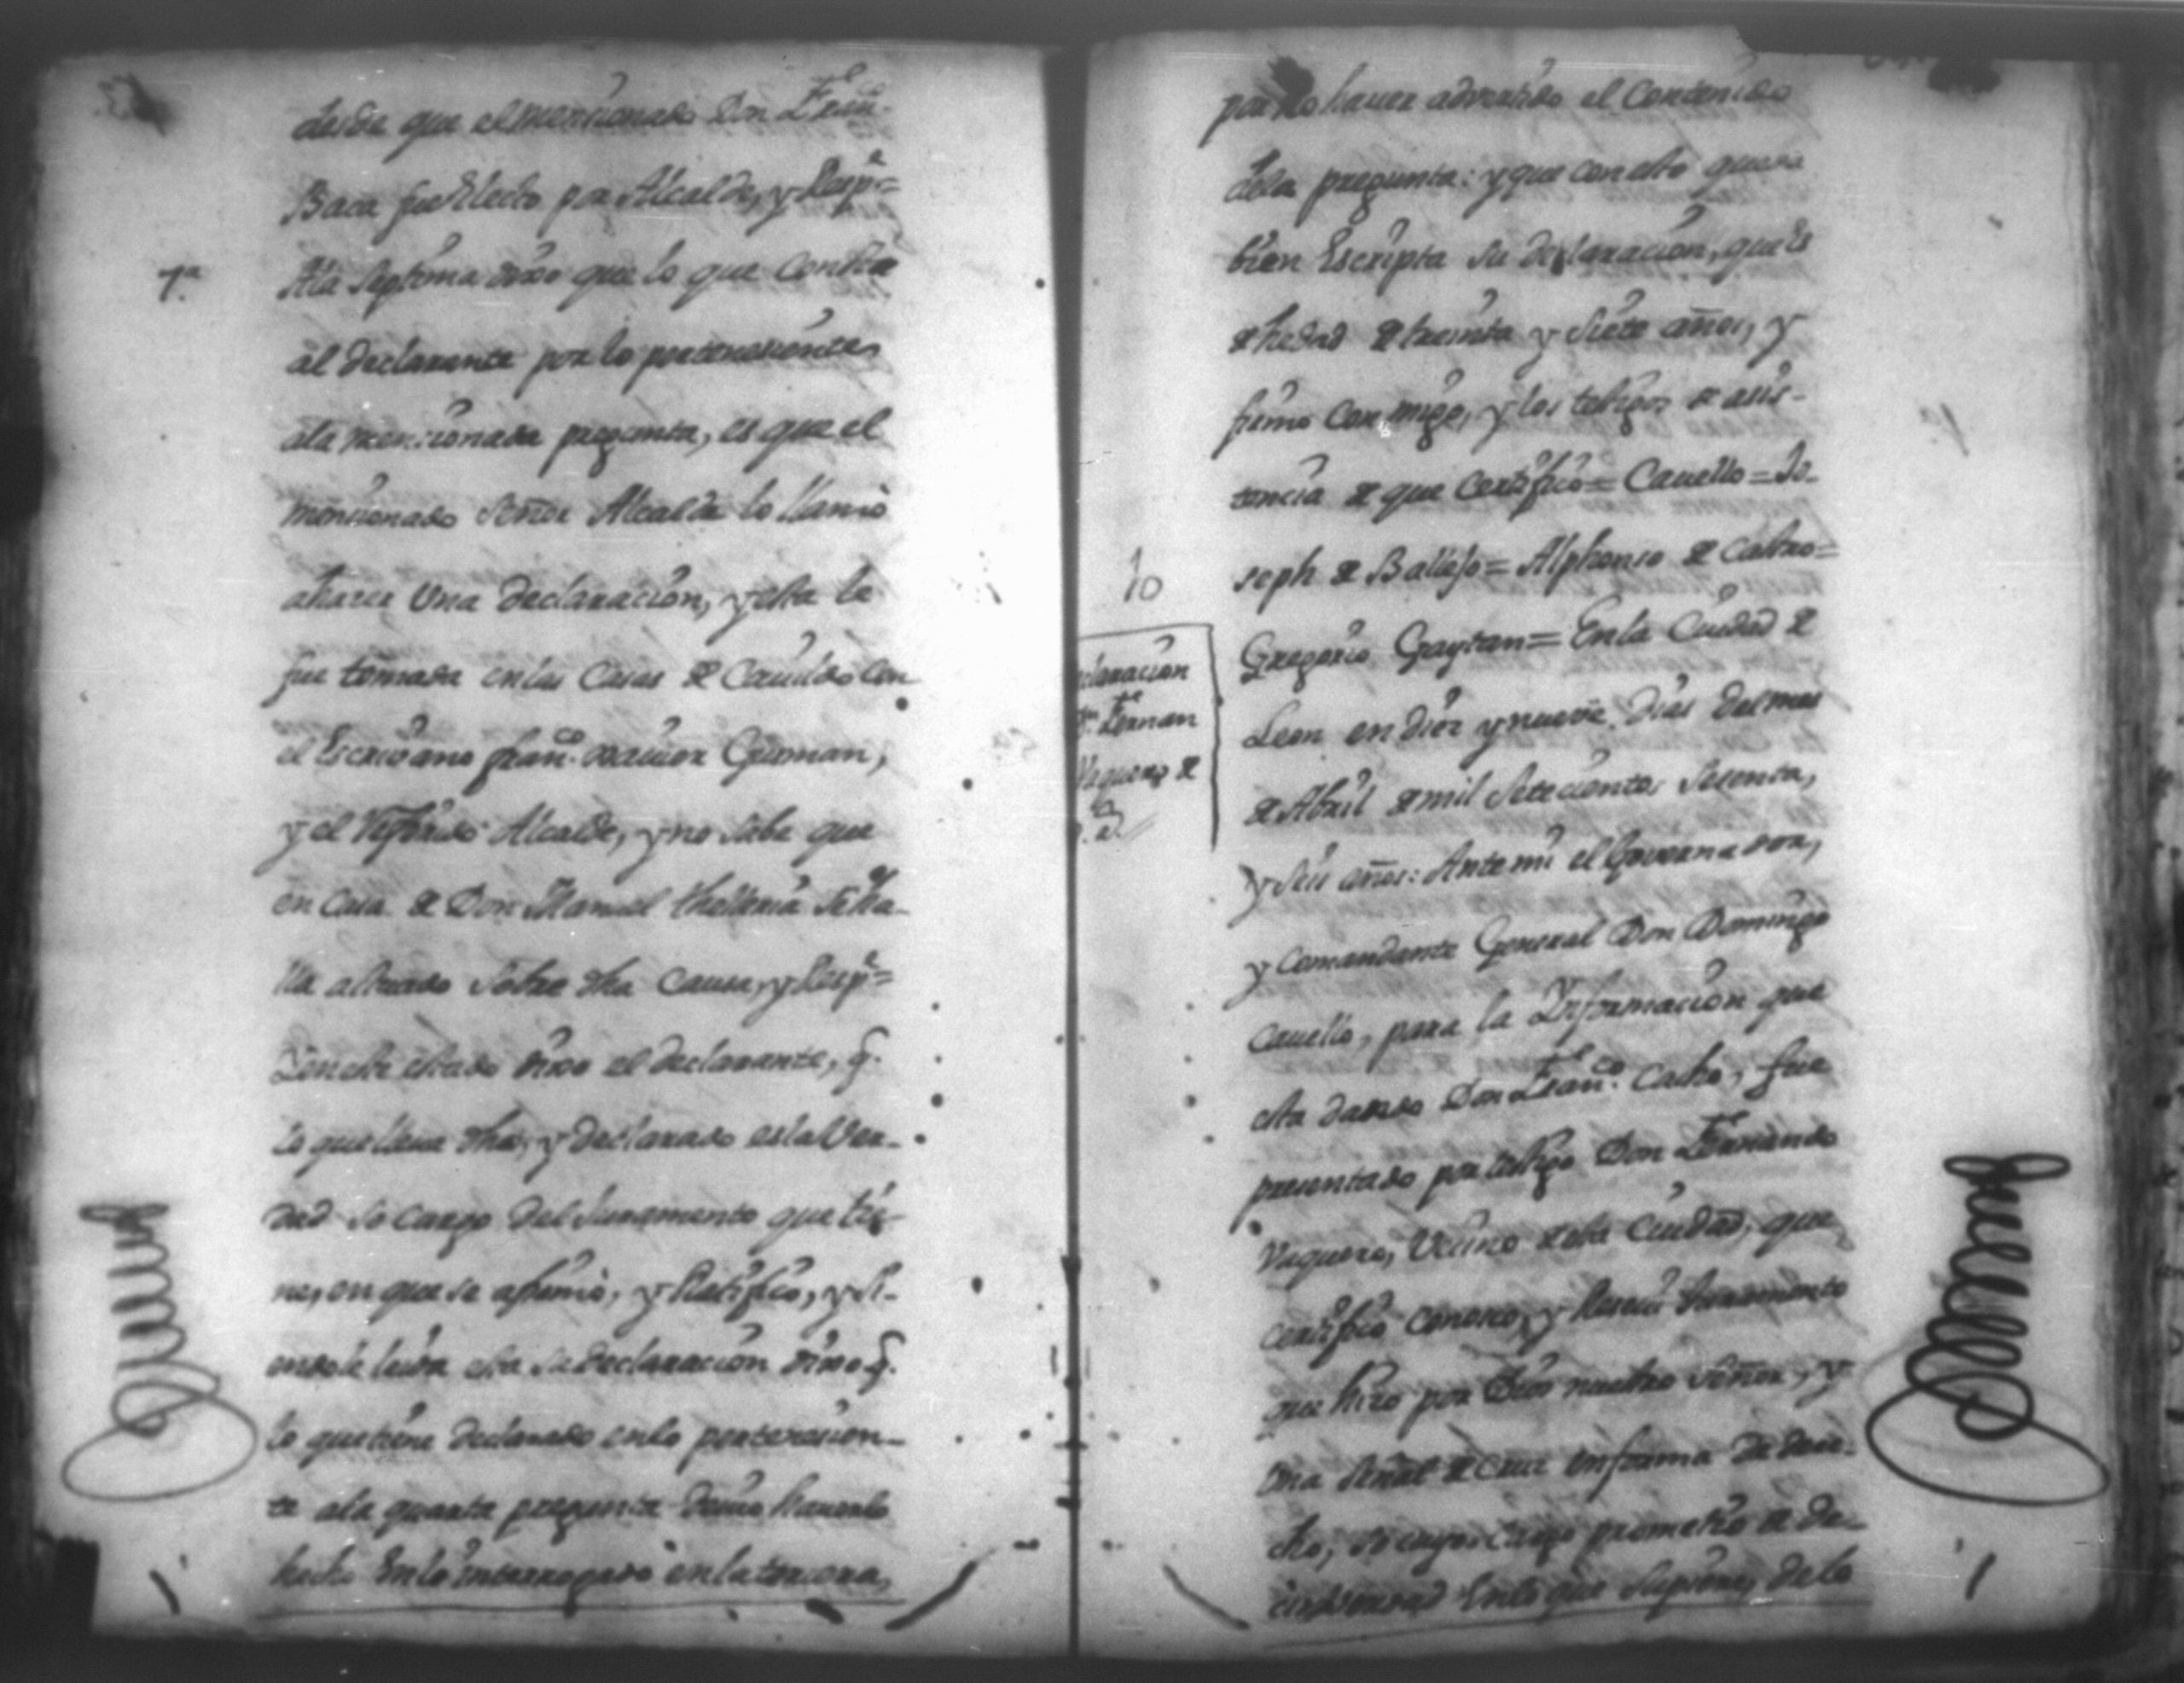 desde que el mencionado Don Fran.co
Baca fue electo por Alcalde, y Resp.e=
7.a
A la septima dixo que lo que consta
al declarante por lo perteneciente
ala mencionada pregunta, es que el
mencionado señor Alcalde lo llamò
ahacer Una declaracion, y esta le
fue tomada enlas Casas de Cauildo con
el Escrivano fran.co Guzman,
y el Referido Alcalde, y no sabe que
en casa de Don Manuel se ha-
lla actuado sobre dha causa, y Resp.e=
Y en este estado dixo el declarante, q.
lo que lleua dho, y declarado es la Ver-
dad so cargo del Juramento que tie-
ne, en que se afirmò, y Ratificò, y si-
endole leida esta su declaracion dixo q.
lo que tiene declarado enlo pertenecien-
te ala quarta pregunta deuio hauerlo
hecho En lo interrogado en la tercera,
por no hauer advertido el contenido
dela pregunta: y que con esto queda
bien Escripta su declaracion, que es
de hedad de treinta y siete años, y
firmò conmigo, y los testigos de asis-
tencia de que certifico= Cauello= Jo-
seph de Vallejo= Alphonso de Castro=
Gregorio Gaytan= En la Ciudad de
Leon en diez y nueve dias del mes
de Abril de mil setecientos sesenta,
y seis años: Ante mi el Governador,
y Comandante General Don Domingo
Cauello, para la Ynformacion que
esta dando Don Fran.co Castro, fue
presentado por testigo Don Fernando
Vaquero, Vecino desta Ciudad, que
certifico conosco, y Reseui Juramento
que hizo por Dios nuestro Señor, y
Una Señal de Cruz en forma de dere-
cho, so cuyo cargo prometio de de-
cir verdad En lo que supiere, de lo
10
claracion
Dn. Fernan
Vaquero de